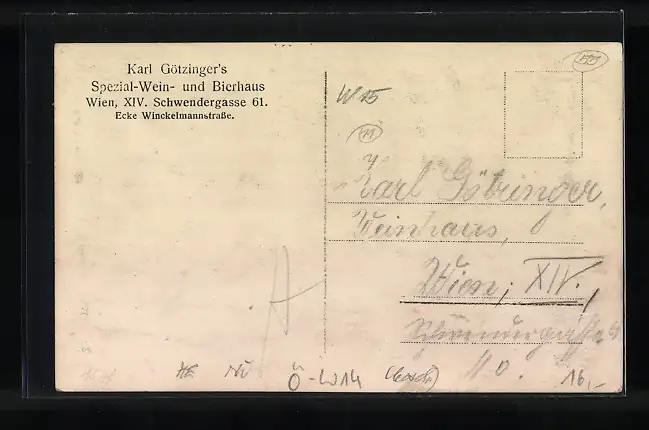 Karl Götzinger's
Spezial-Wein- und Bierhaus
Wien, XIV. Schwendergasse 61.
Ecke Winckelmannstraße.
50
W 15
Karl Götzinger,
Weinhaus,
Wien, XIV.,
Schwendergasse
Ö-W14
16,-